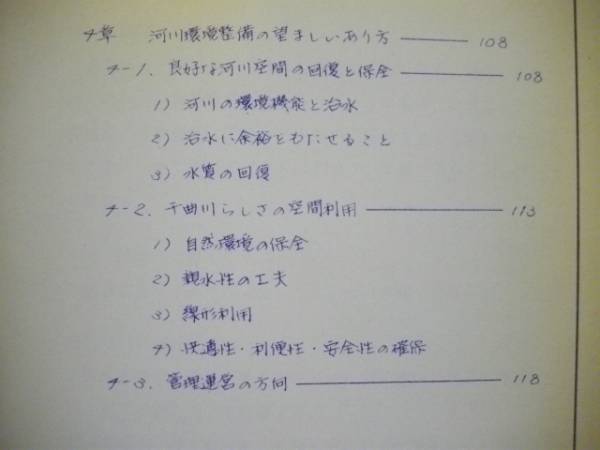 4章 河川環境整備の望ましいあり方 ── 108
4-1. 良好な河川空間の回復と保全 ── 108
1) 河川の環境機能と治水
2) 治水に余裕をもたせること
3) 水質の回復
4-2. 千曲川らしさの空間利用 ── 113
1) 自然環境の保全
2) 親水性の工夫
3) 線形利用
4) 快適性・利便性・安全性の確保
4-3. 管理運営の方向 ── 118